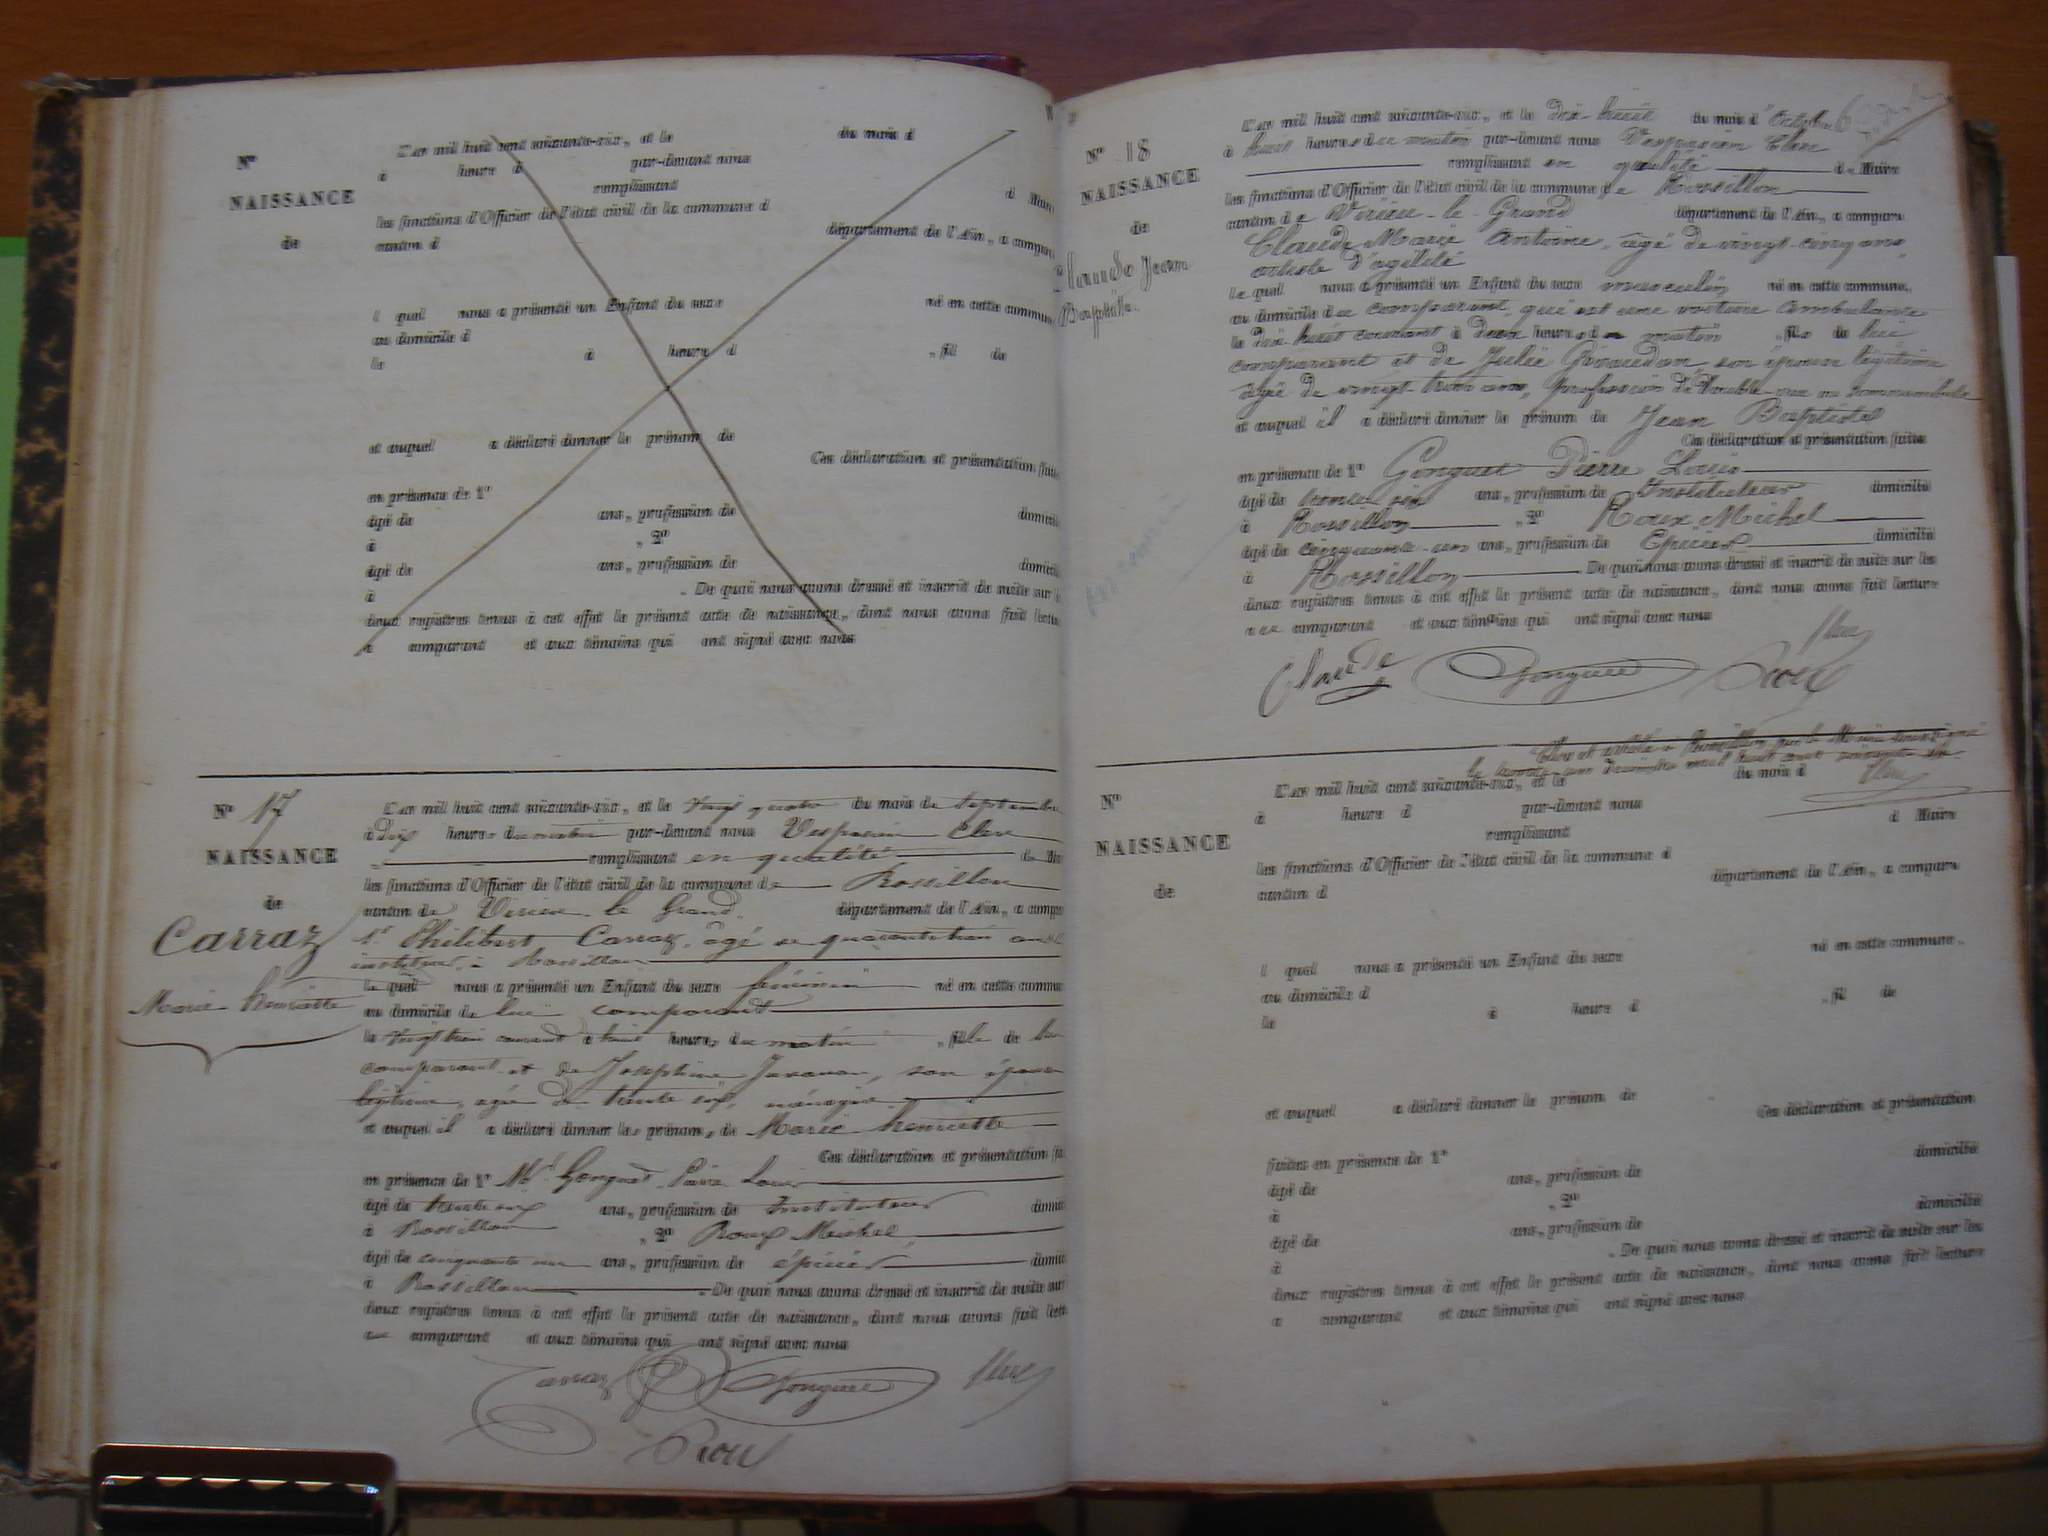 N°
NAISSANCE
de
L'an mil huit cent soixante-six, et le du mois d
à heure d par-devant nous
remplissant d Maire
les fonctions d'Officier de l'état civil de la commune d
canton d département de l'Ain, a comparu
l quel nous a présenté un Enfant du sexe né en cette commune
au domicile d
le à heure d , fil de
et auquel a déclaré donner le prénom de
Ces déclaration et présentation faites
en présence de 1°
âgé de ans, profession de domicilié
à , 2°
âgé de ans, profession de domicilié
à . De quoi nous avons dressé et inscrit de suite sur les
deux registres tenus à cet effet le présent acte de naissance, dont nous avons fait lecture
a comparant et aux témoins qui ont signé avec nous
N° 17
NAISSANCE
de
Carraz
Marie henriette
L'an mil huit cent soixante-six, et le vingt quatre du mois de septembre
à dix heures du matin par-devant nous Vespasien Clerc
remplissant en qualité de Maire
les fonctions d'Officier de l'état civil de la commune de Rossillon
canton de Virieu le Grand département de l'Ain, a comparu
Sr Philibert Carraz, âgé de quarante trois ans
instituteur, à Rossillon
le quel nous a présenté un Enfant du sexe féminin né en cette commune
au domicile de lui comparant
le vingt trois courant à huit heures du matin , fille de lui
comparant et de Joséphine son épouse
légitime, agée de trente six, ménagère
et auquel il a déclaré donner les prénoms de Marie henriette
Ces déclaration et présentation faites
en présence de 1° Mr Gonguet Pierre Louis
âgé de trente six ans, profession de Instituteur domicilié
à Rossillon , 2° Roux Michel,
âgé de cinquante un ans, profession de épicier domicilié
à Rossillon . De quoi nous avons dressé et inscrit de suite sur
deux registres tenus à cet effet le présent acte de naissance, dont nous avons fait lecture
au comparant et aux témoins qui ont signé avec nous
Carraz Gonguet Clerc
Roux
N° 18
NAISSANCE
de
Claude Jean
Baptiste
L'an mil huit cent soixante-six, et le dix huit du mois d'octobre
à huit heures du matin par-devant nous Vespasien Clerc
remplissant en qualité de Maire
les fonctions d'Officier de l'état civil de la commune de Rossillon
canton de Virieu-le-Grand département de l'Ain, a comparu
Claude Marie Antoine, âgé de vingt-cinq ans,
artiste d'agilité
le quel nous a présenté un Enfant du sexe masculin né en cette commune,
au domicile du comparant, qui est une voiture ambulante
le dix huit courant à deux heures du matin , fils de lui
comparant et de Julie Giraudon, son épouse légitime
âgée de vingt-trois ans, profession de double-vue ou somnambule
et auquel il a déclaré donner le prénom de Jean Baptiste
Ces déclaration et présentation faites
en présence de 1° Gonguet Pierre Louis
âgé de trente six ans, profession de Instituteur domicilié
à Rossillon , 2° Roux Michel
âgé de cinquante-un ans, profession de Epicier domicilié
à Rossillon De quoi nous avons dressé et inscrit de suite sur les
deux registres tenus à cet effet le présent acte de naissance, dont nous avons fait lecture
au comparant et aux témoins qui ont signé avec nous
Clerc
Claude Gonguet Roux
Clos et arrêté à Rossillon par le Maire soussigné
le trente-un Décembre mil huit cent soixante six
Clerc
N°
NAISSANCE
de
L'an mil huit cent soixante-six, et le du mois d
à heure d par-devant nous
remplissant d Maire
les fonctions d'Officier de l'état civil de la commune d
canton d département de l'Ain, a comparu
l quel nous a présenté un Enfant du sexe né en cette commune.
au domicile d
le à heure d , fil de
et auquel a déclaré donner le prénom de
Ces déclaration et présentation
faites en présence de 1°
âgé de ans, profession de domicilié
à , 2°
âgé de ans, profession de domicilié
à . De quoi nous avons dressé et inscrit de suite sur les
deux registres tenus à cet effet le présent acte de naissance, dont nous avons fait lecture
a comparant et aux témoins qui ont signé avec nous